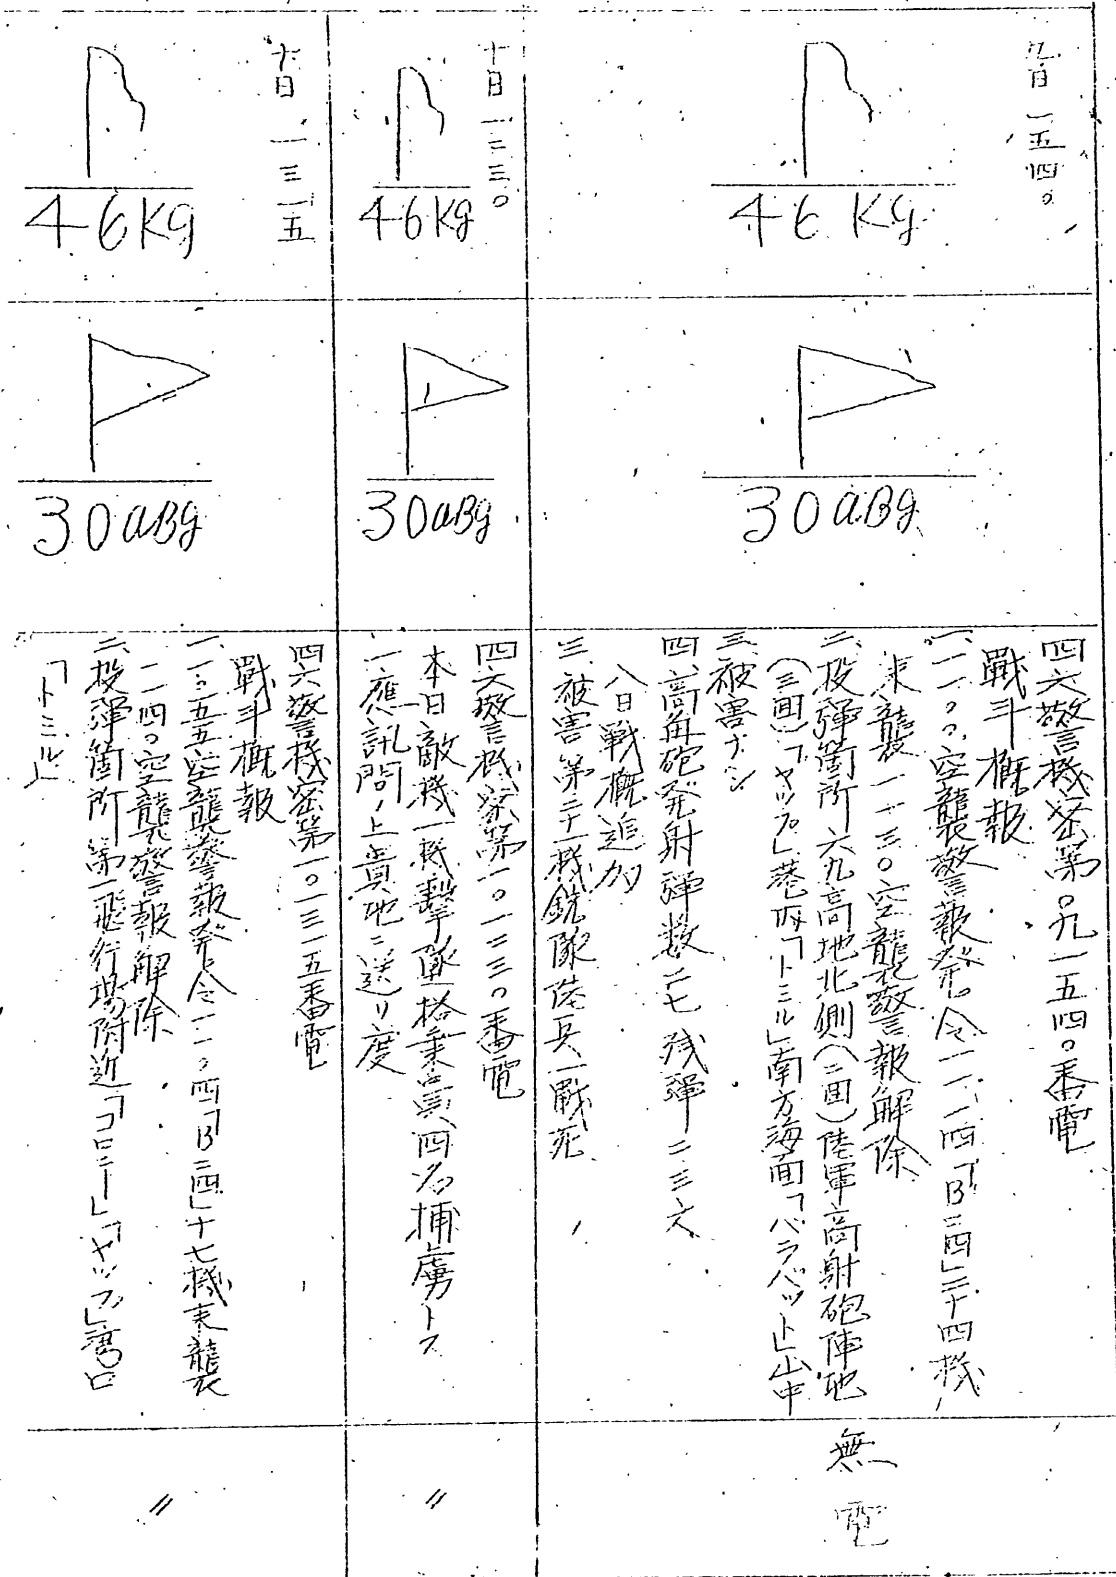 九日一五四〇
46Kg
30aBg
四六警機密第〇九一五四〇番電
戦斗概報
一、一一〇〇空襲警報発令一一一四「B二四」二十四機
来襲一一三〇空襲警報解除
二、投弾箇所六九高地北側(二回)陸軍高射砲陣地
(三回)「ヤップ」港内「トミル」南方海面「バラバット」山中
三、被害ナシ
四、高角砲発射弾数二七残弾二三六
八日戦概追加
三、被害第二十一機銃隊陸兵一戦死
無電
十日一二三〇
46Kg
30aBg
四六警機密第一〇一二三〇番電
本日敵機一機撃墜搭乗員四名捕虜トス
一應訊問ノ上貴地ニ送リ度
〃
十日一三一五
46Kg
30aBg
四六警機密第一〇一三一五番電
戦斗概報
一、一〇五五空襲警報発令一一〇四「B二四」十七機来襲
一一四〇空襲警報解除
二、投弾箇所第一飛行場附近「コロニー」「ヤップ」湾口
「トミル」
〃